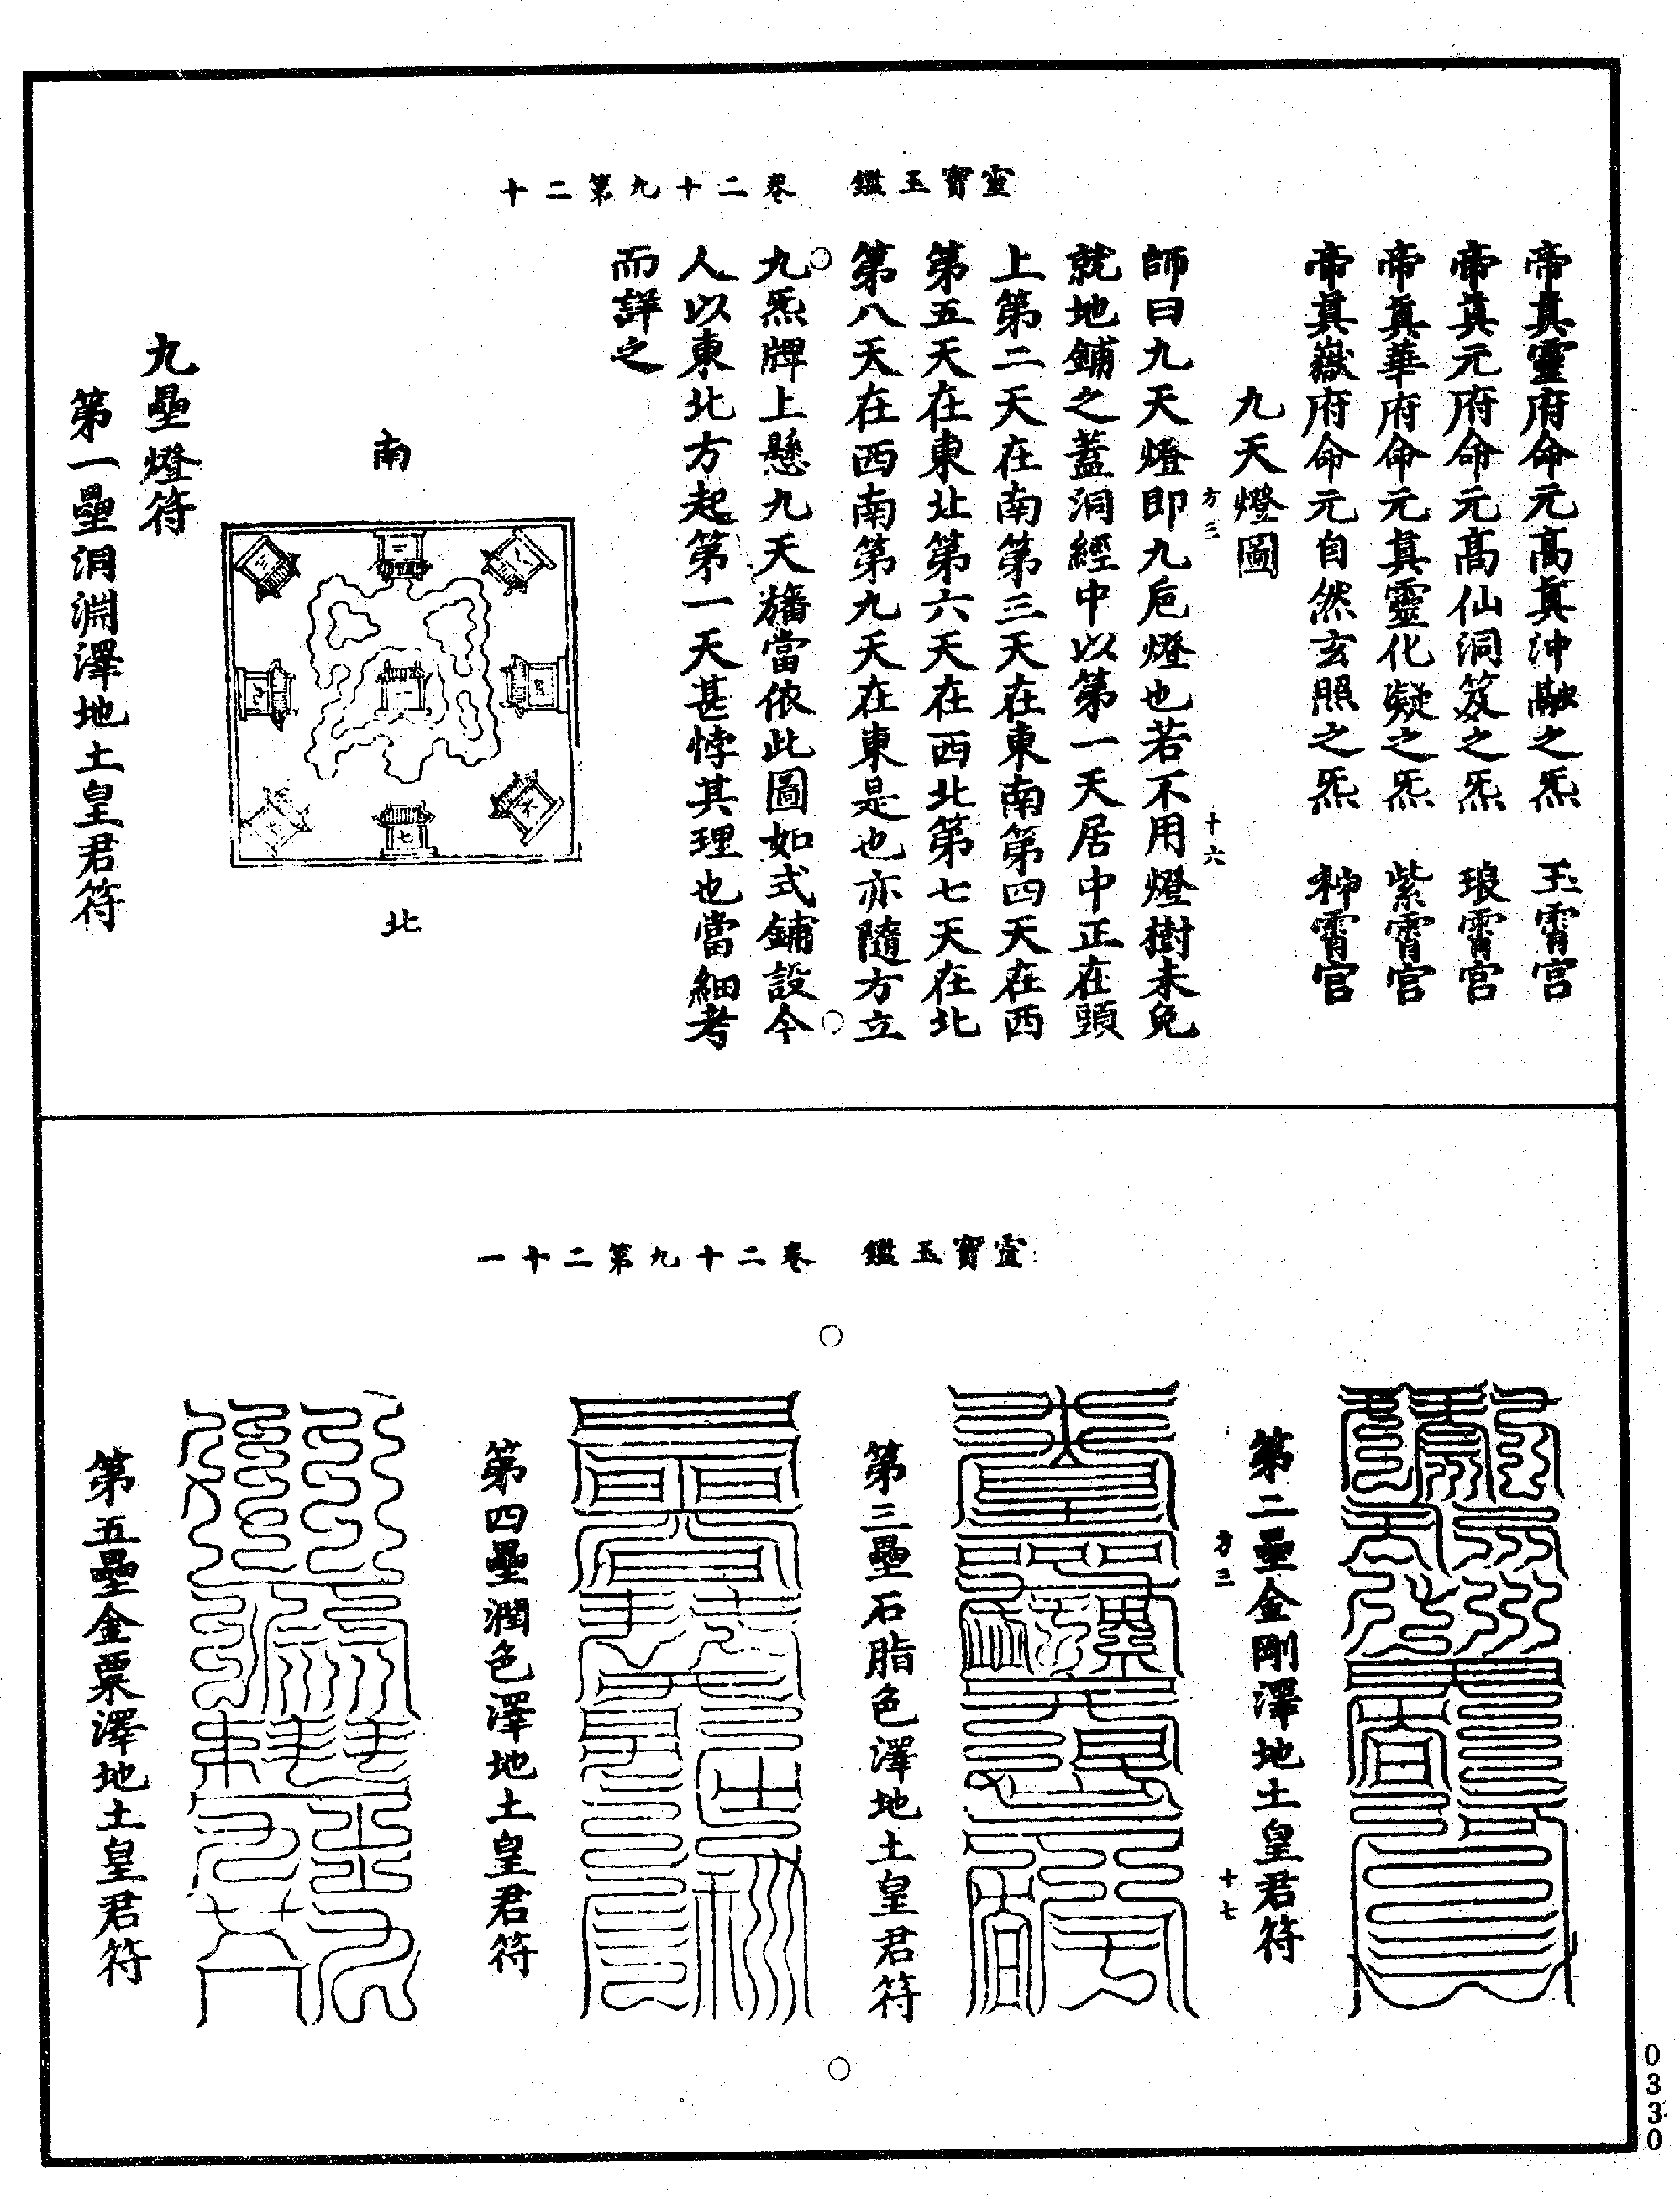 靈寶玉鑑　卷二十九第二十
帝真靈府命元高真沖融之炁　玉霄宮
帝真元府命元高仙洞笈之炁　琅霄宮
帝真華府命元真靈化凝之炁　紫霄宮
帝真嶽府命元自然玄照之炁　神霄宮
九天燈圖
方三　十六
師曰九天燈即九巵燈也若不用燈樹未免
就地鋪之蓋洞經中以第一天居中正在頭
上第二天在南第三天在東南第四天在西
第五天在東北第六天在西北第七天在北
第八天在西南第九天在東是也亦隨方立
九炁牌上懸九天旛當依此圖如式鋪設今
人以東北方起第一天甚悖其理也當細考
而詳之
南
北
九壘燈符
第一壘洞淵澤地土皇君符
靈寶玉鑑　卷二十九第二十一
第二壘金剛澤地土皇君符
方三　十七
第三壘石脂色澤地土皇君符
第四壘潤色澤地土皇君符
第五壘金粟澤地土皇君符
0330